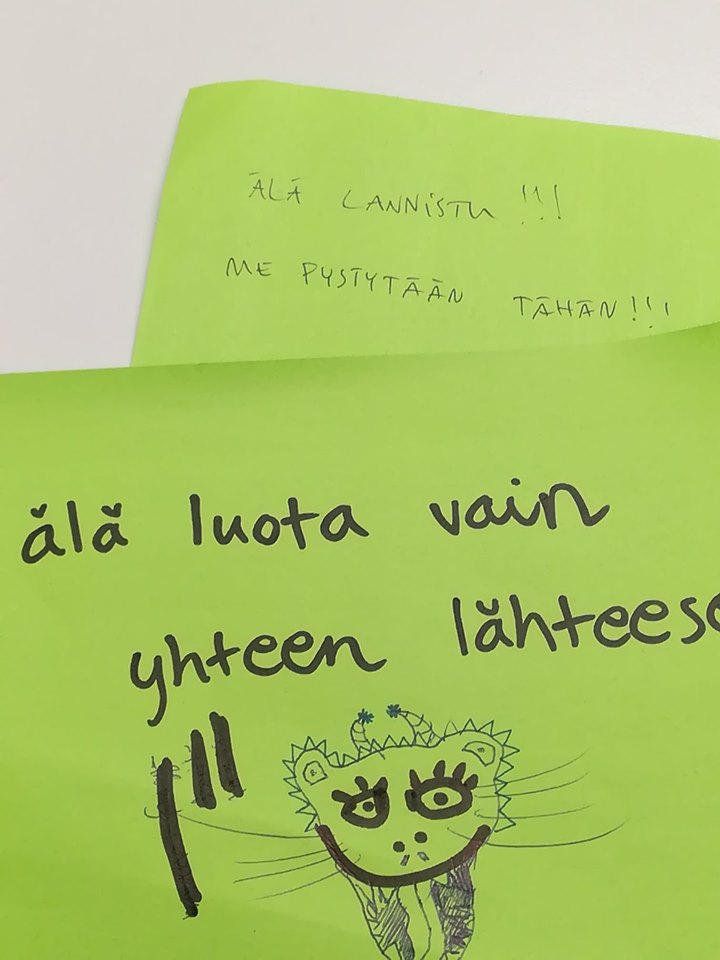 ÄLÄ LANNISTU!!!
ME PYSTYTÄÄN TÄHÄN!!!
älä luota vain
yhteen lähtees